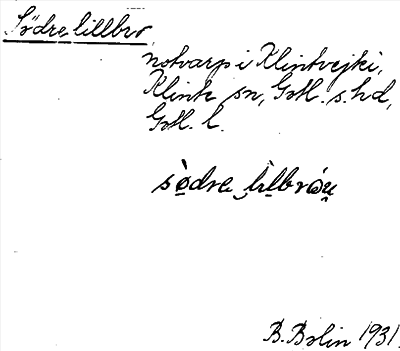 Södra lillbro
notvarp i Klintvejki,
Klinte sn, Gotl. s. hd,
Gotl. l.
sò̤dra lìlbrǻu̯
B. Bolin 1931.